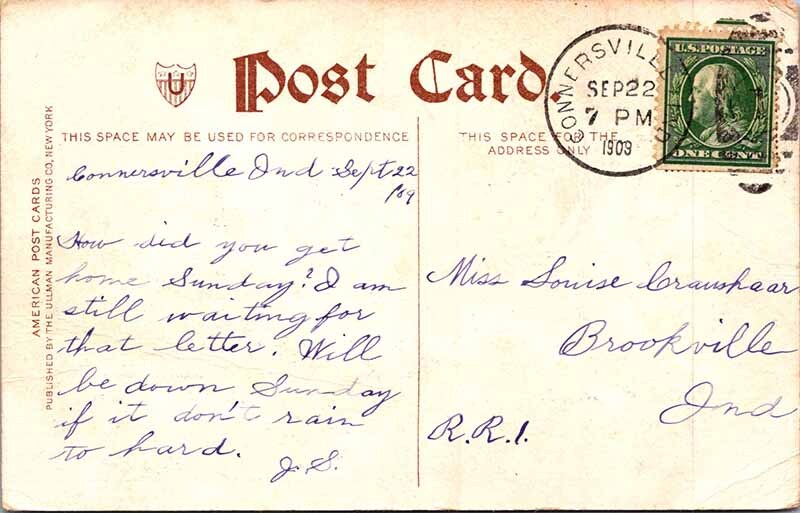 U
Post Card.
CONNERSVILLE
SEP 22
7 PM
1909
U.S. POSTAGE
ONE CENT
THIS SPACE MAY BE USED FOR CORRESPONDENCE
THIS SPACE FOR THE
ADDRESS ONLY
AMERICAN POST CARDS
PUBLISHED BY THE ULLMAN MANUFACTURING CO, NEW YORK
Connersville Ind Sept 22
/09
How did you get
home Sunday? I am
still waiting for
that letter. Will
be down Sunday
if it don't rain
to hard.
J.S.
Miss Louise Craushaar
Brookville
Ind
R.R.1.